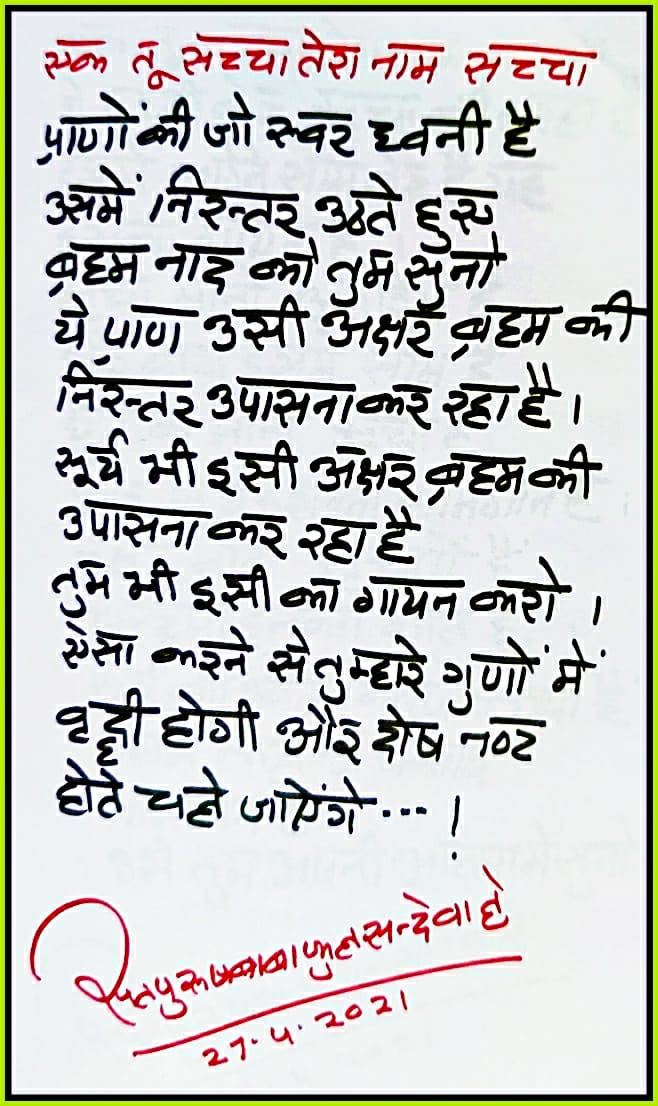 एक तू सच्चा तेरा नाम सच्चा
प्राणों की जो स्वर ध्वनी है
उसमें निरन्तर उठते हुए
ब्रहम नाद को तुम सुनो
ये प्राण उसी अक्षर ब्रहम की
निरन्तर उपासना कर रहा है ।
सूर्य भी इसी अक्षर ब्रहम की
उपासना कर रहा है
तुम भी इसी का गायन करो ।
ऐसा करने से तुम्हारे गुणों में
वृद्धी होगी और दोष नष्ट
होते चले जाएंगे ... !
सतपुरूष बाबा फुलसन्दे वाले
27.4.2021